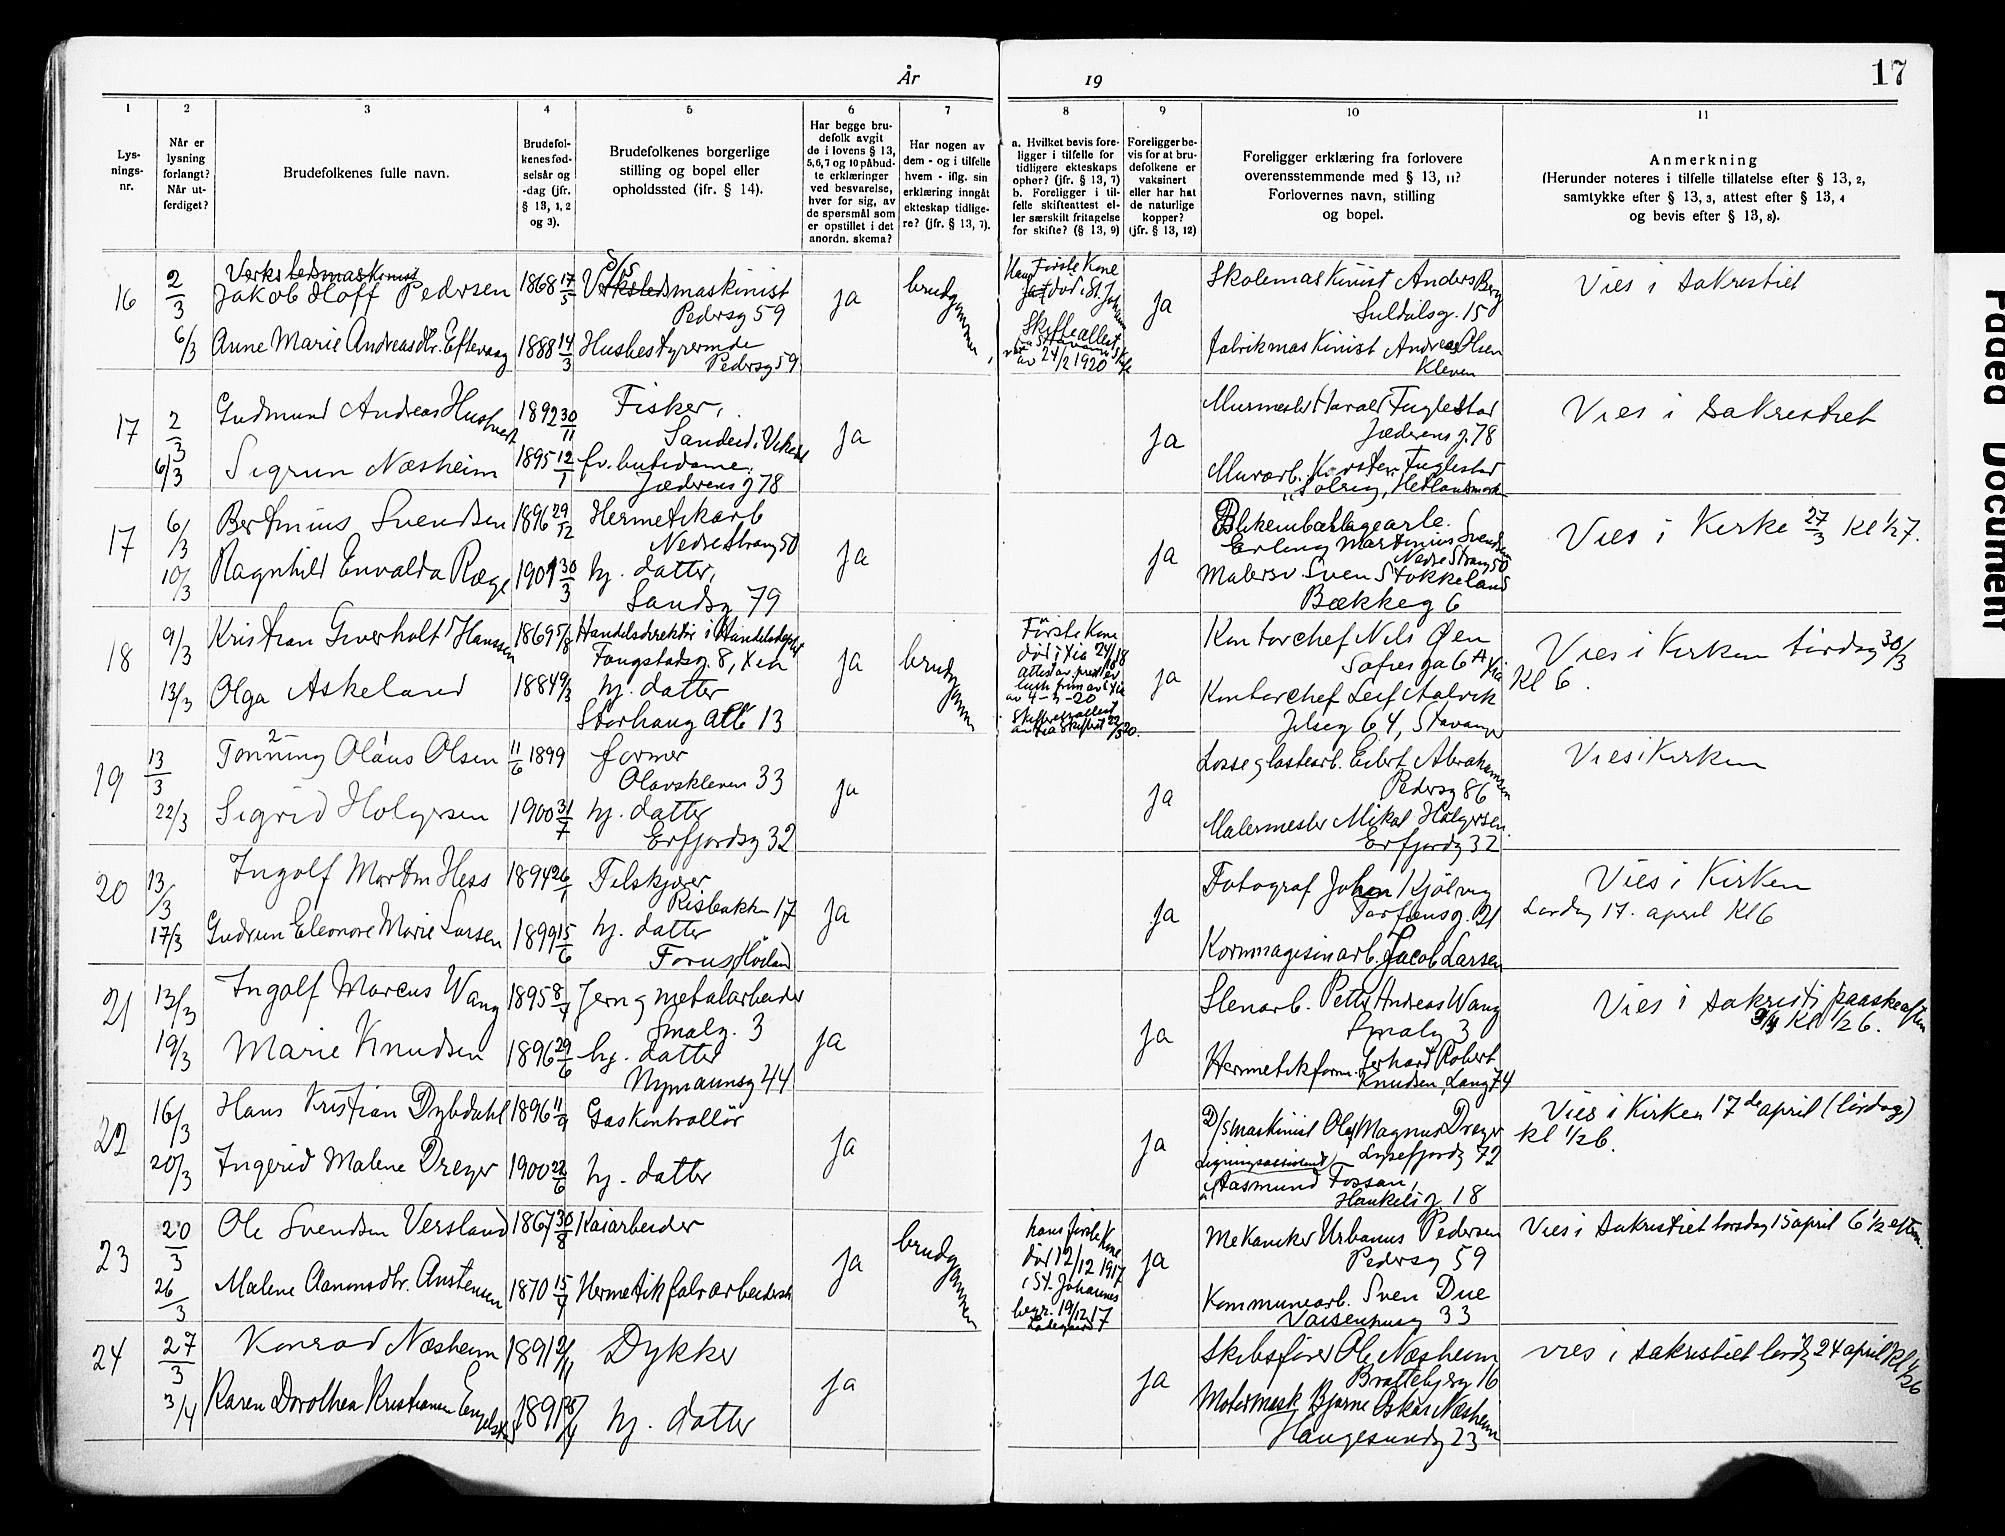 År
19
17
1
Lys-
nings-
nr.
2
Når er
lysning
forlangt?
Når ut-
ferdiget?
3
Brudefolkenes fulle navn.
4
Brudefol-
kenes fød-
selsår og
-dag (jfr.
§ 13, 1, 2
og 3).
5
Brudefolkenes borgerlige
stilling og bopel eller
opholdssted (jfr. § 14).
6
Har begge bru-
defolk avgit
de i lovens § 13,
5, 6, 7 og 10 påbud-
te erklæringer
ved besvarelse,
hver for sig, av
de spørsmål som
er opstillet i det
anordn. skema?
7
Har nogen av
dem - og i tilfelle
hvem - iflg. sin
erklæring inngåt
ekteskap tidlige-
re? (jfr. § 13, 7).
8
a. Hvilket bevis fore-
ligger i tilfelle for
tidligere ekteskaps
ophør? (jfr. § 13, 7)
b. Foreligger i til-
felle skifteattest el-
ler særskilt fritagelse
for skifte? (§ 13, 9)
9
Foreligger be-
vis for at bru-
defolkene er
vaksinert
eller har hat
de naturlige
kopper?
(jfr. § 13, 12)
10
Foreligger erklæring fra forlovere
overensstemmende med § 13, 11?
Forlovernes navn, stilling
og bopel.
11
Anmerkning
(Herunder noteres i tilfelle tillatelse efter § 13, 2,
samtykke efter § 13, 3, attest efter § 13, 4
og bevis efter § 13, 8).
16
2/3
6/3
Verkstedsmaskinist
Jakob Hoff Pedersen
1868 17/5
D/S
Verkstedsmaskinist
Pedersg 59
Anne Marie Andreasdtr. Eftevaag
1888 14/3
Husbestyrerinde
Pedersg 59
ja
brudgommen
Hans Første Kone
død i St. Johannes
Skifteattest
av 24/2 1920
ja
Skolemaskinist Anders Berg
Suldalsg. 15
Fabrikmaskinist Andreas Olsen
Kleven
Vies i sakrestiet
17
2/3
6/3
Gudmund Andreas Hustveit
1892 30/11
Fisker,
Sandeid i Vikedal
Sigrun Næsheim
1895 12/1
fv. butidame
Jæderens g 78
ja
ja
Murmester Harald Fuglestad
Jæderens g. 78
Murarb. Karsten Fuglestad
"Solreig", Hetlandsmark
Vies i sakrestiet
17
6/3
10/3
Bertinius Svendsen
1896 29/12
Hermetikarb
Nedre Strang 50
Ragnhild Envalda Rege
1901 30/3
hj. datter,
Sandsg 79
ja
ja
Blikemballagearb.
Erling Martinius Svendsen
Nedre Strang 50
Malersv. Sven Stokkeland
Bækkeg 6
Vies i Kirke 27/3 Kl 1/2 7.
18
9/3
13/3
Kristian Giverholt Hanssen
1869 5/8
Handelsdirektør i Handelsdept
Fougstadsg. 8, Xia
Olga Askeland
1884 9/3
hj. datter
Storhaug alle 13
ja
brudgommen
Første Kone
død i Xia 24/8 18
av 4-3-20
ja
Kontorchef Nils Øen
Sofies ga 6A Xia
Kontorchef Leif Aalvik
Jelsg 64, Stavanger
Vies i Kirken tirsdag 30/3
Kl 6.
19
13/3
22/3
2 1
Tønning Olaus Olsen
11/6 1899
former
Olavskleven 33
Sigrid Holgersen
1900 31/7
hj. datter
Erfjordsg 32
ja
ja
Losseglastearb. Eilert Abrahamsen
Pedersg 86
Malermester Mikal Holgersen.
Erfjordg 32
Vies i Kirken
20
13/3
17/3
Ingolf Martin Hess
1894 26/1
Filskjærer
Risbakkn 17
Gudrun Eleonore Marie Larsen
1899 15/6
hj. datter
Forus, Høiland
ja
ja
Fotograf Johan Kjølvig
Torfæusg. 21
Kornmagesinarb. Jacob Larsen
Vies i Kirken
Lørdag 17. april Kl 6
21
13/3
19/3
Ingolf Marcus Wang
1895 8/7
Jern g metalarbeider
Smalg. 3
Marie Knudsen
1896 29/6
hj. datter
Nymannsg 44
ja
ja
Stenarb. Petter Andreas Wang
Smalg 3
Hermetikform. Gerhard Robert
Knudsen, Lang 74
Vies i sakresti paaskeaften
3/4 Kl 1/2 6.
22
16/3
20/3
Hans Kristian Dybdahl
1896 11/9
Gaskontrollør
Ingerid Malene Dreyer
1900 22/6
hj. datter
ja
ja
D/S maskinist Olaf Magnus Dreyer
Lysefjordg 72
Ligningsassistent
Aasmund Fossan,
Haukelig 18
Vies i Kirken 17de april (lørdag)
Kl 1/2 6.
23
20/3
26/3
Ole Svendsen Versland
1867 30/8
Kaiarbeider
Malene Aanonsdtr. Austensen
1870 15/7
Hermetikfabrarbeidersk
ja
brudgommen
hans første Kone
død 12/12 1917
i St. Johannes
begr. 19/12 17
Ladegaard
ja
Mekaniker Urbanus Pedersen
Pedersg 59
Kommunearb. Sven Due
Vaisenhusg 33
Vies i sakrestiet torsdag 15 april 6 1/2 eftm.
24
27/3
3/4
Konrad Næsheim
1891 2/11
Dykker
Karen Dorothea Kristianen
1891
hj. datter
ja
ja
Skibsfører Ole Næsheim
Brattebjerg 16
Motormask Bjarne Oskar Næsheim
Haugesundg 23
vies i sakrestiet lørdg 24 april Kl 1/2 6
Paged Document